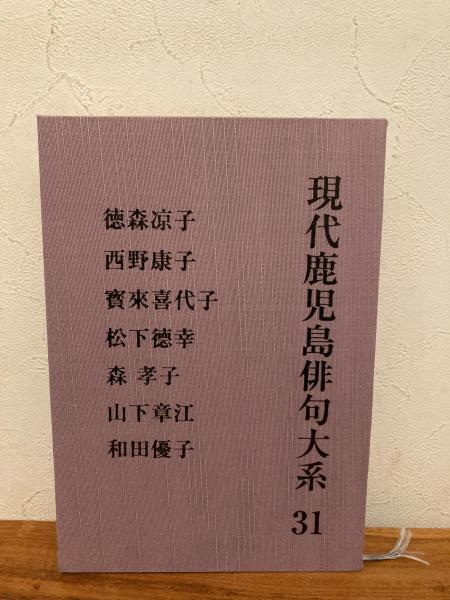 現代鹿児島俳句大系 31
徳森凉子
西野康子
賓來喜代子
松下德幸
森 孝子
山下章江
和田優子